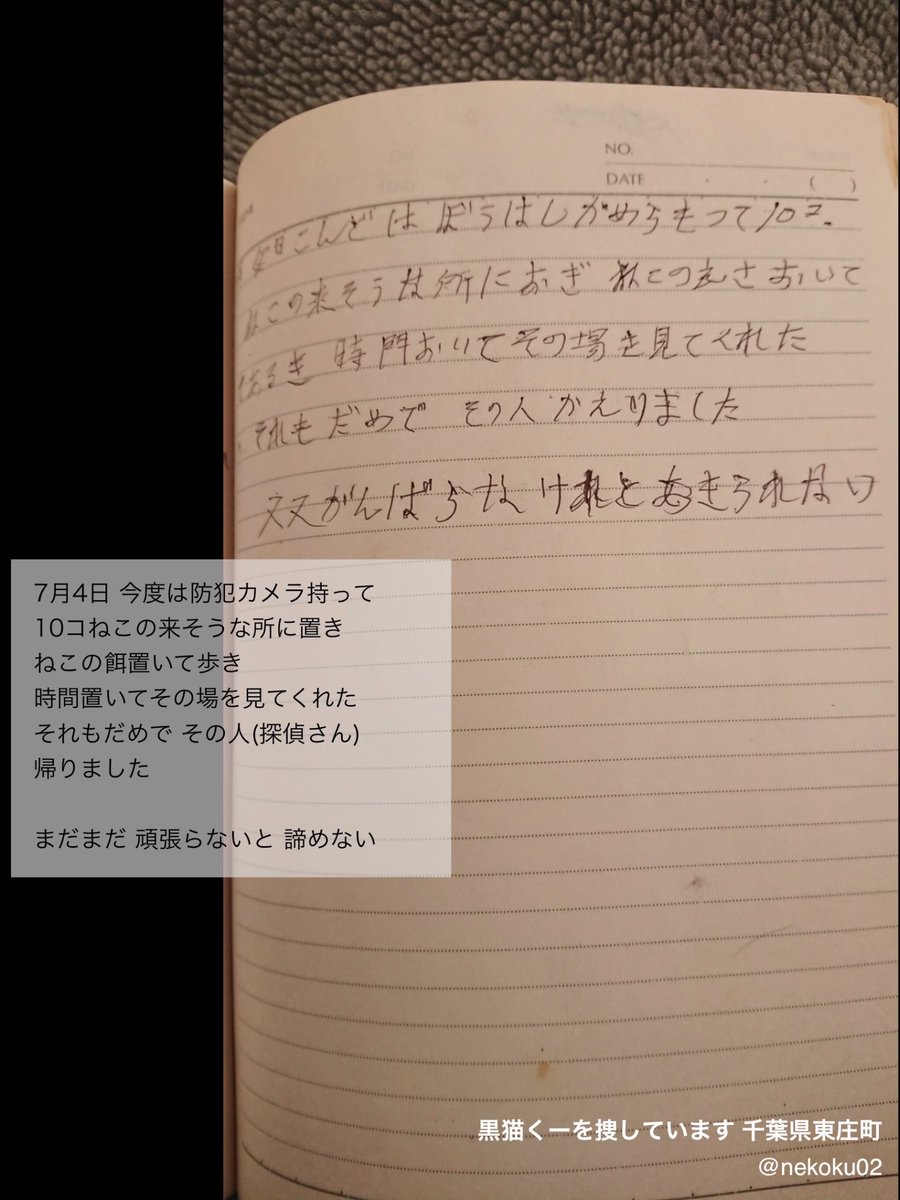 NO.
DATE ・ ・ ( )
4日こんどはぼうはんかめらもって10コ.
ねこの来そうな所におぎ ねこのえさおいて
あるき 時間おいてその場を見てくれた
それもだめで その人かえりました
又又がんばらなけれと あきられない
7月4日 今度は防犯カメラ持って
10コねこの来そうな所に置き
ねこの餌置いて歩き
時間置いてその場を見てくれた
それもだめで その人(探偵さん)
帰りました
まだまだ 頑張らないと 諦めない
黒猫くーを捜しています 千葉県東庄町
@nekoku02